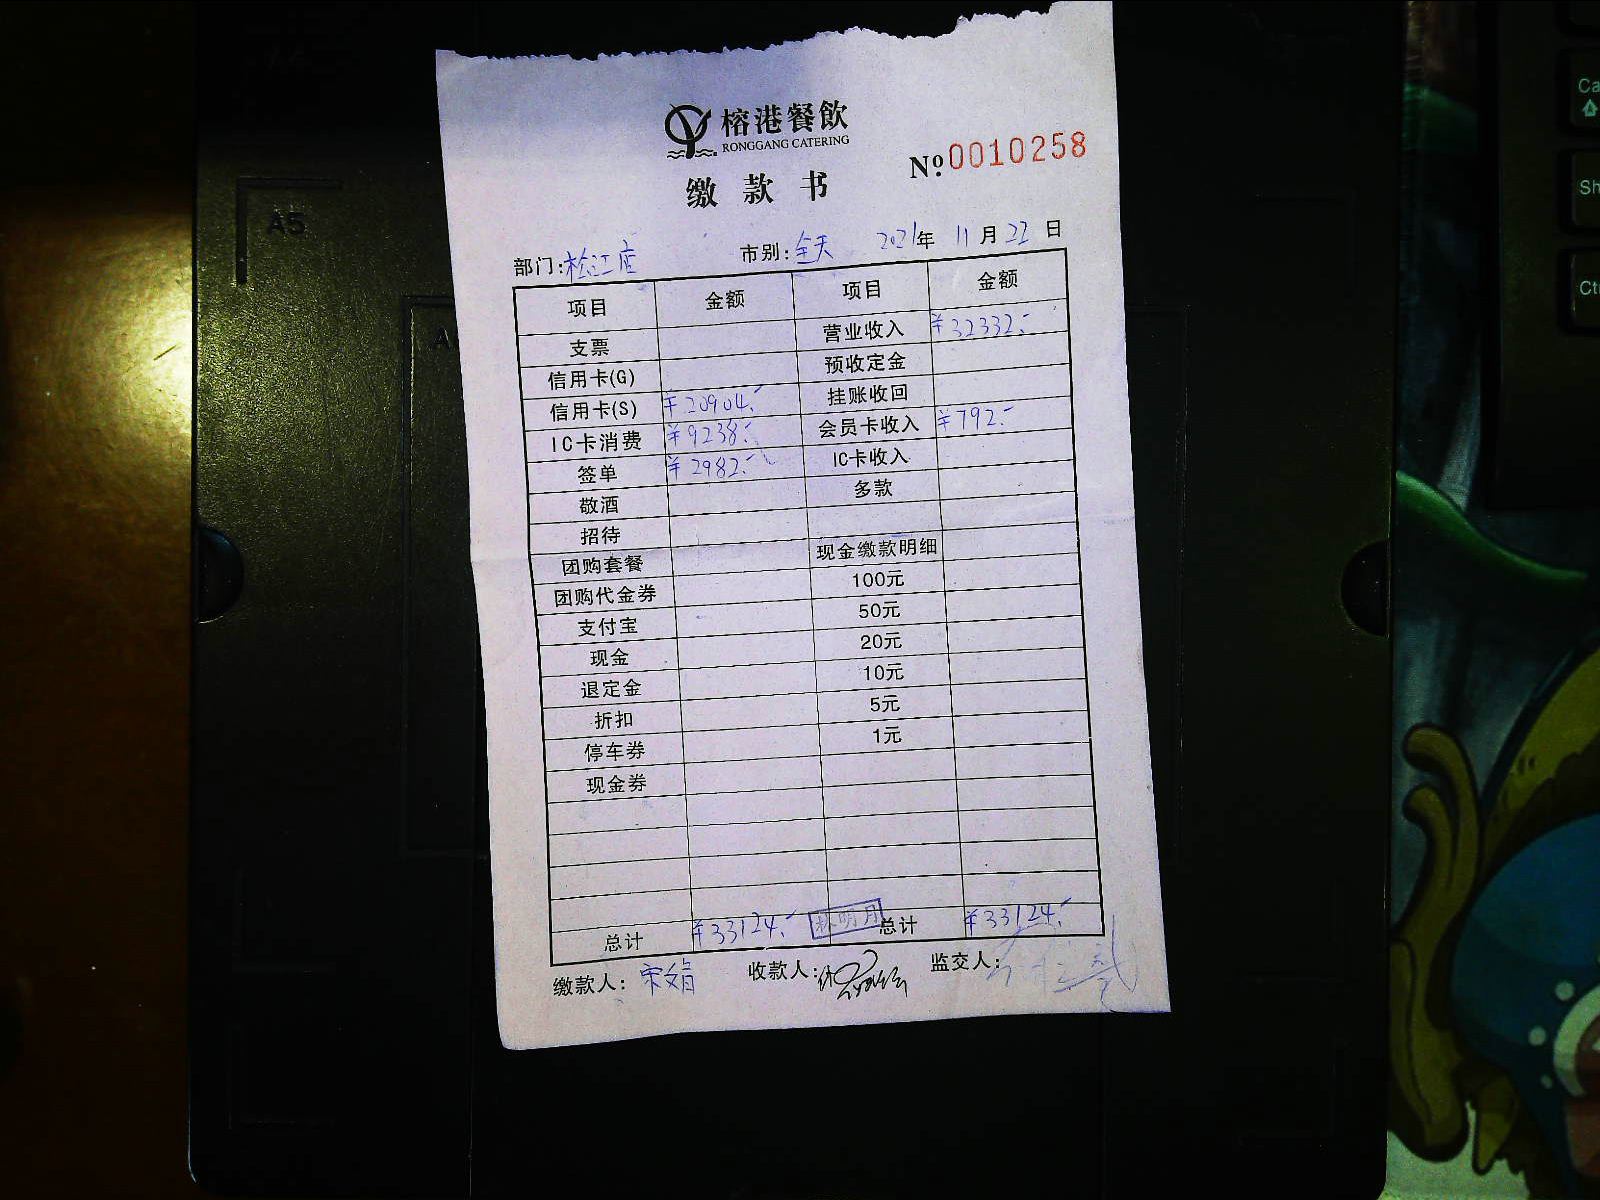 榕港餐飲
RONGGANG CATERING
№ 0010258
缴款书
部门:松江店 市别:全天 2021年 11月22日
项目 金额 项目 金额
支票 营业收入 ¥32332.-
信用卡(G) 预收定金
信用卡(S) ¥20904.- 挂账收回
IC卡消费 ¥9238.- 会员卡收入 ¥792.-
签单 ¥2982.- IC卡收入
敬酒 多款
招待
团购套餐 现金缴款明细
团购代金券 100元
支付宝 50元
现金 20元
退定金 10元
折扣 5元
停车券 1元
现金券
总计 ¥33124.- 林明月 总计 ¥33124.-
缴款人: 宋娟 收款人: 监交人:
A5
Ca
Sh
Ct